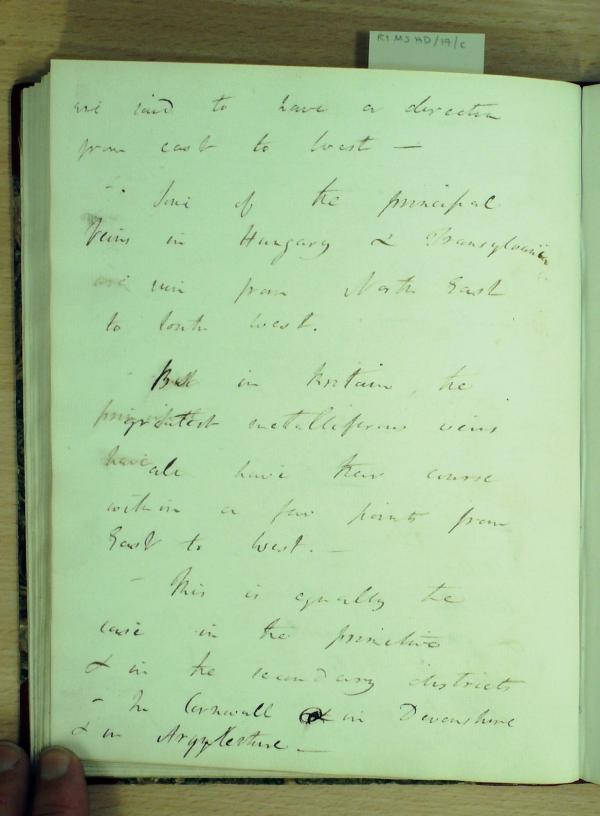 RI MS HD/19/C
are said to have a direction
from east to west —
– . Some of the principal
Veins in Hungary & Transylvania
are run from North East
to South West.
– But in Britain, the
greatest metalliferous veins
have all have their course
within a few points from
East to West. —
– This is equally the
case in the primitive
& in the secondary districts
– In Cornwall & in Devonshire
& in Argyleshire —